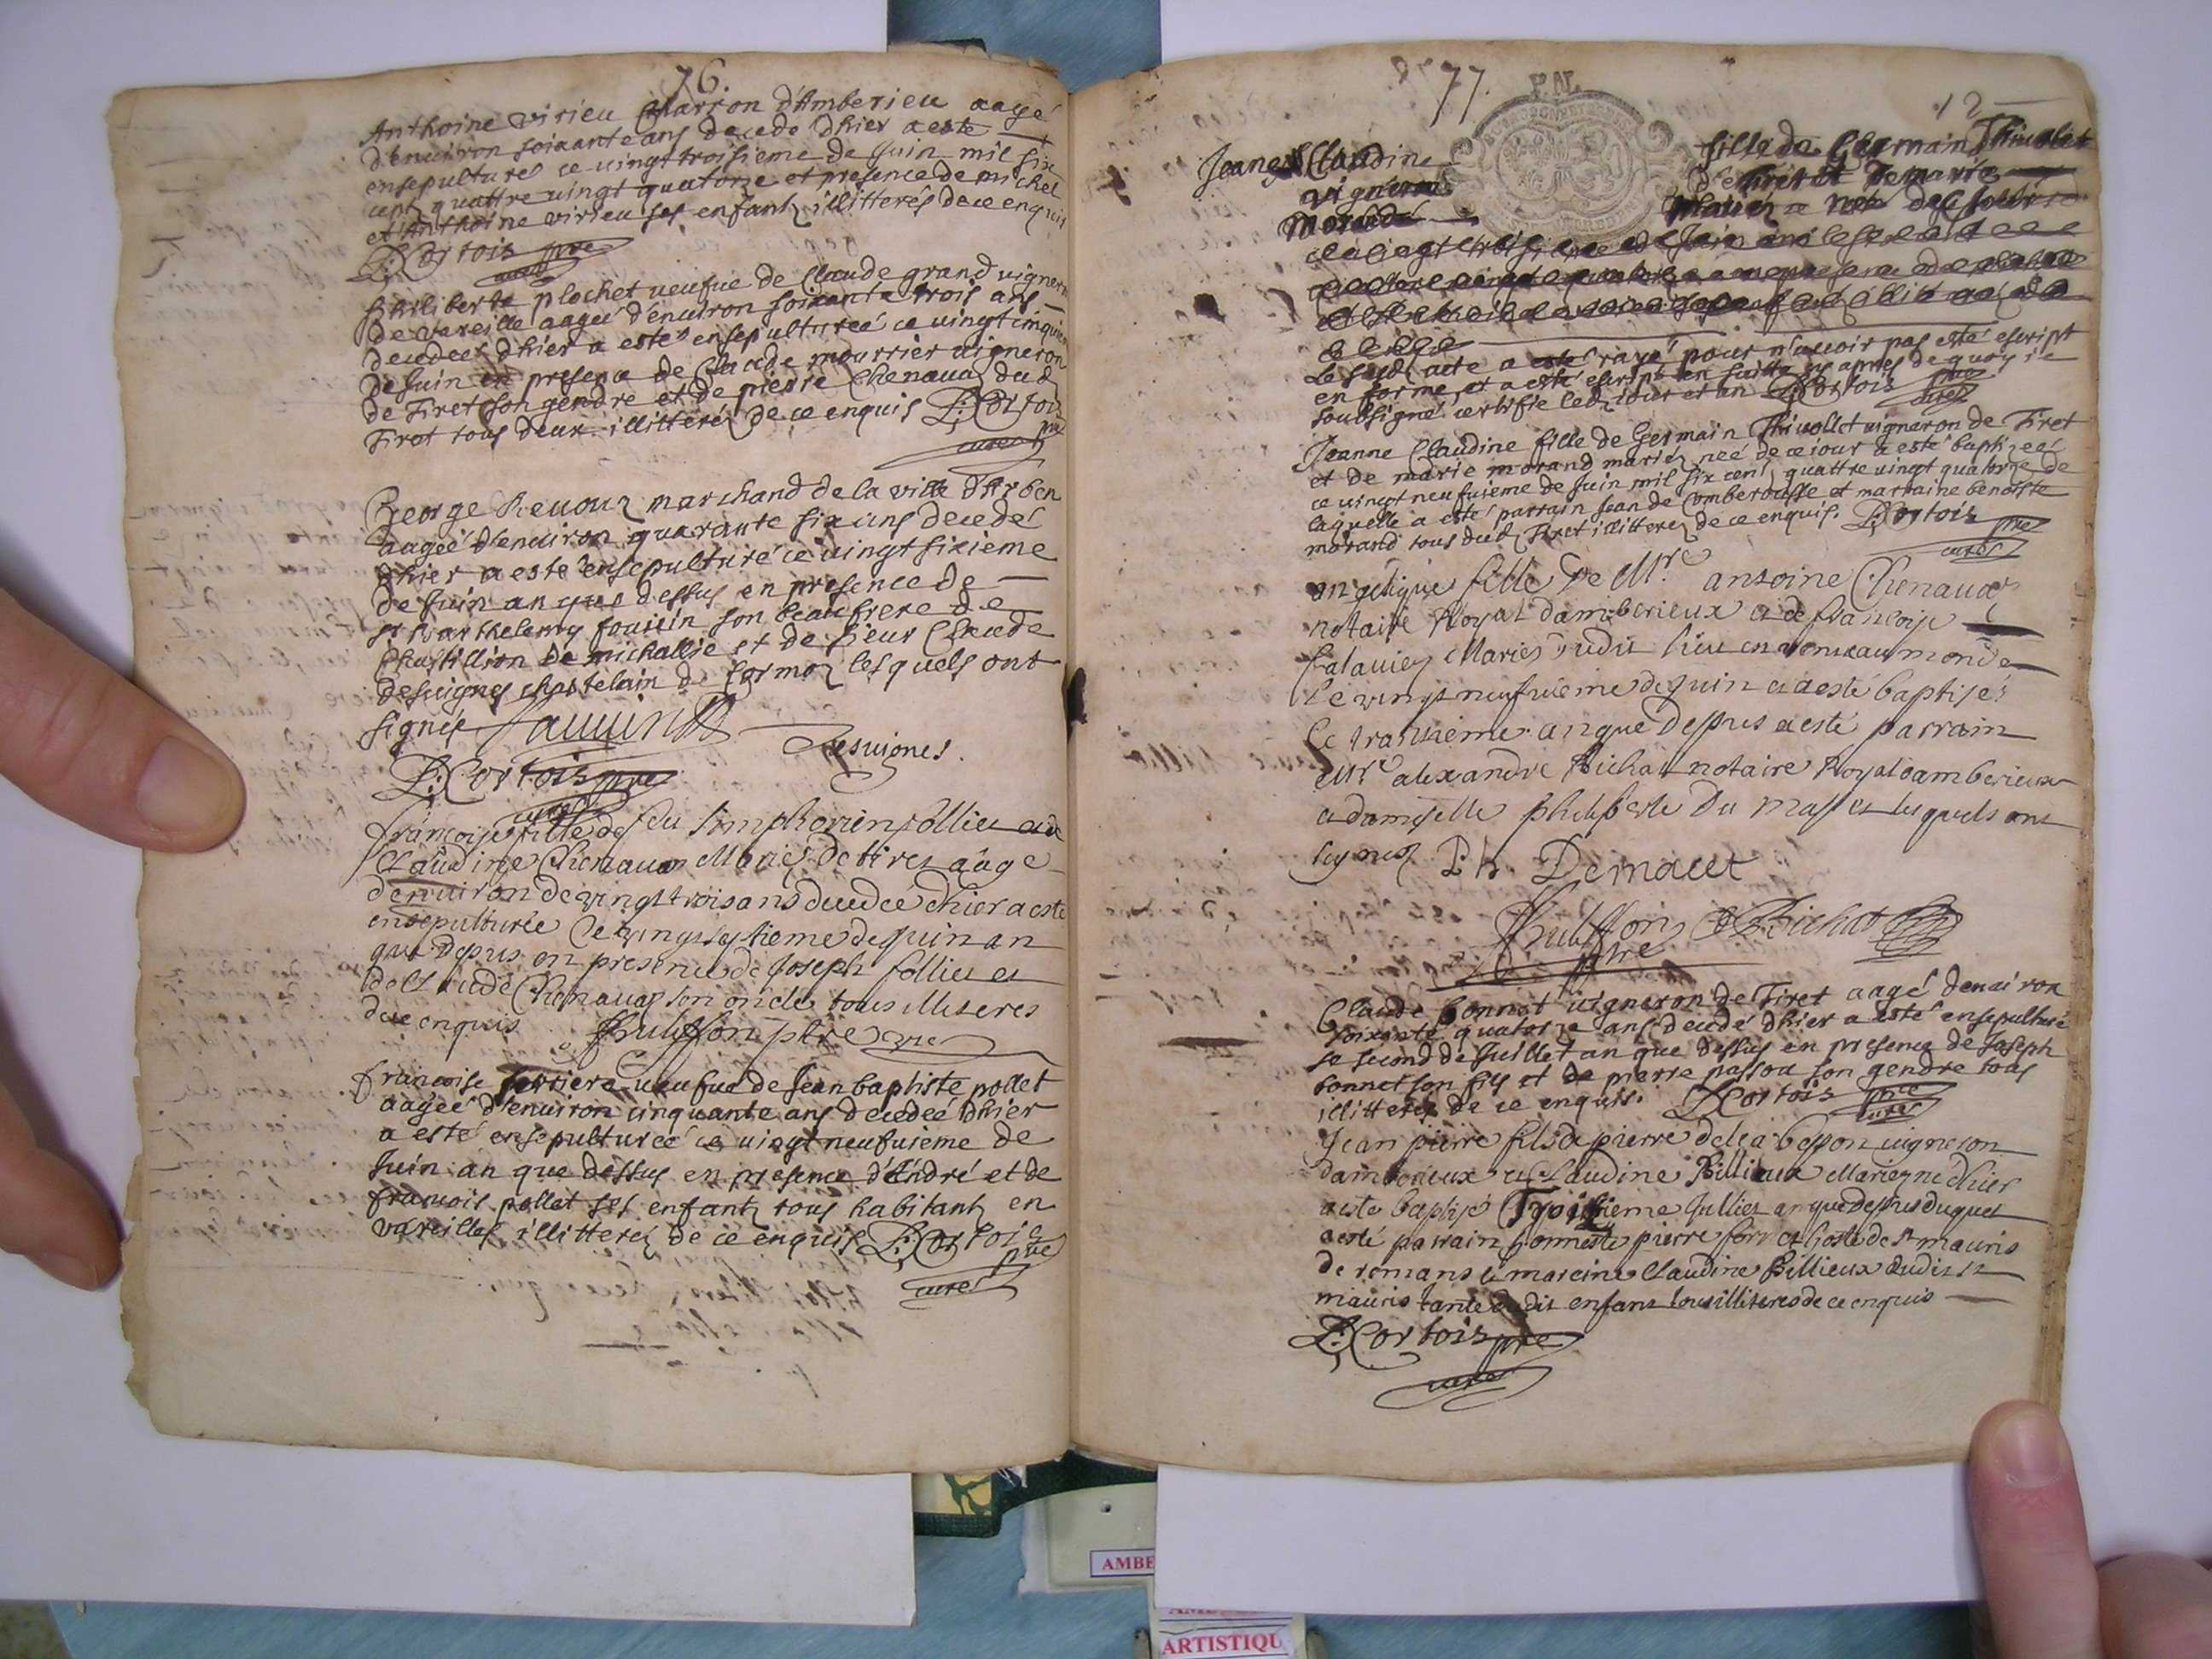 76.
Anthoine virieu Charron d'Amberieu aagé
d'enuiron soixante ans decedé dhier a esté
ensepulturé ce uingt troisieme de Juin mil six
cent quattre uingt quatorze et presence de michel
et Anthoine virieu ses enfantz illitterés de ce enquis
L: Cortois pre
curé
philiberte plochet ueufue de Claude grand uigneron
de Vareille aagée d'enuiron soixante trois ans
decedeé dhier a esté ensepultureé ce uingt cinquieme
de Juin en presence de Claude mourrier uigneron
de Tiret son gendre et de pierre Chenauaz dud
Tiret tous deux illitterez de ce enquis L: Cortois
pre
curé
George Reuoux marchand de la ville d'Arben
aageé d'enuiron quarante six ans decedé
dhier a esté ensepulturé ce uingt sixieme
de Juin an que dessus en presence de
sr Barthelemy fauuin son beaufrere de
Chastillion de michallie et de sieur Claude
desuignes chastelain de Cormoz lesquels ont
signés fauuin
Desuignes.
L: Cortois pre
curé
françoise fille de feu simphorien follliet et de
Claudine Chenauaz Mariés de tiret aage
denuiron de vingt trois ans decedeé dhier a esté
ensepulturée Ce vingt septieme de juin an
que depus en presence de Joseph follliet et
de Claude Chenauaz son oncle tous illiteres
de ce enquis
francoise ferriere ueufue de Jean baptiste pollet
aageé d'enuiron cinquante ans decedeé dhier
a esté ensepultureé ce uingt neufuieme de
Juin an que dessus en presence d'André et de
francois pollet ses enfantz tous habitantz en
vareilles illitterez de ce enquis L: Cortois
pre
curé
77.
12
Jeanne Claudine
fille de Germain Thiuolet
vigneron
de Tiret et de marie
morand
mariez
Le susd acte a esté rayé pour n'auoir pas esté escript
en forme et a esté escript en suitte cy apres de quoy ie
soubsigné certifie led iour et an L Cortois pre
curé
Jeanne Claudine fille de Germain Thiuollet uigneron de Tiret
et de marie morand mariez neé de ce iour a esté baptizeé
ce uingt neufuieme de Juin mil six centz quattre uingt quatorze de
laquelle a esté parrain Jean de Comberousse et marraine benoiste
morand tous dud Tiret illitterez de ce enquis. L: Cortois
pre
curé
angelique fille de Mre antoine Chenauaz
notaire Royal damberieux et de françoise
Mariés dudit lieu en venue au monde
Le vingt neufuieme de juin et a esté baptisé
Le trantieme an que depus a esté parrain
Mre alexandre Bichat notaire Royal damberieux
et damoiselle philiberte Du Mas et lesquels ont
signez Ph. Demacet
Bichat
pre
Claude bonnet uigneron de Tiret aagé denuiron
soixante quatorze ans decedé dhier a esté ensepulturé
le second de Juillet an que dessus en presence de Joseph
bonnet son fils et de pierre passou son gendre tous
illitterez de ce enquis. L Cortois pre
curé
Jean pierre fils de pierre uigneron
damberieux et Claudine Billieux Mariez né dhier
a esté baptisé Troisieme Julliet an que depus duquel
a esté parrain honneste pierre hoste de st mauris
de remans et mareine Claudine Billieux dudit st
mauris tante dudit enfant tous illiteres de ce enquis
L: Cortois pre
curé
AMBE
ARTISTIQU